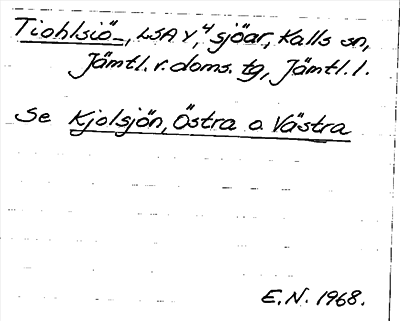 Tiohlsiö-, LSA Y, 4 sjöar, Kalls sn,
Jämtl. v. doms. tg, Jämtl. l.
Se Kjolsjön, Östra o. Västra
E.N. 1968.